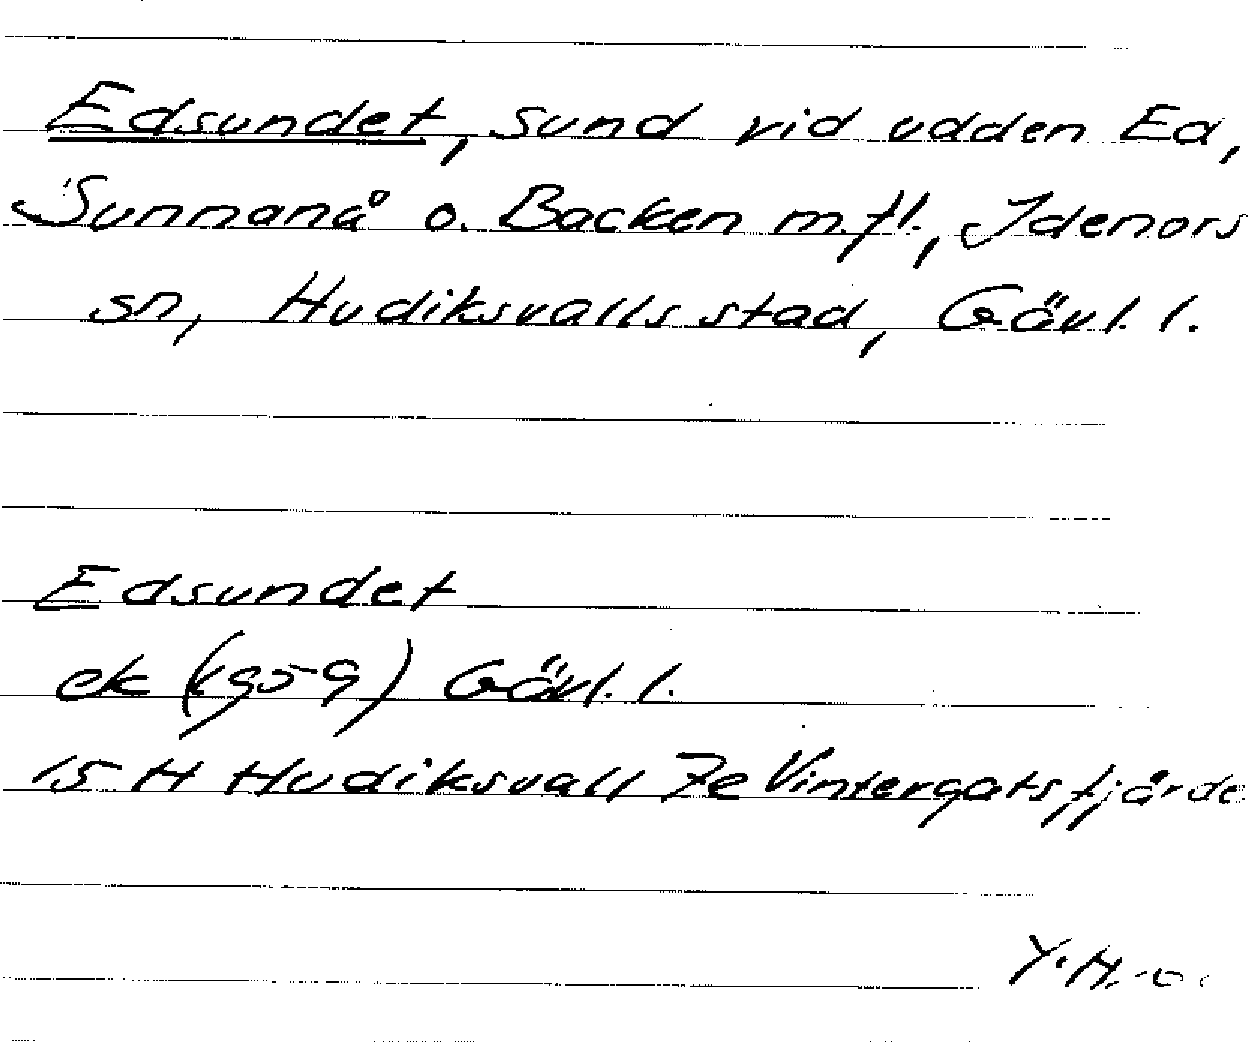 Edsundet, sund vid udden Ed,
Sunnanå o. Backen m.fl., Idenors
sn, Hudiksvalls stad, Gävl. l.
Edsundet
ek (1959) Gävl. l.
15 H Hudiksvall 7e Vintergatsfjärde